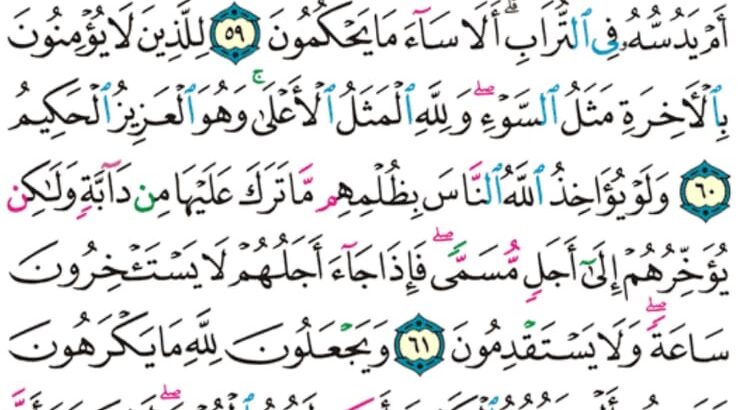 أَمْ يَدُسُّهُۥ فِى ٱلتُّرَابِ ۗ أَلَا سَآءَ مَا يَحْكُمُونَ ٥٩ لِلَّذِينَ لَا يُؤْمِنُونَ
بِٱلْأَخِرَةِ مَثَلُ ٱلسَّوْءِ ۖ وَلِلَّهِ ٱلْمَثَلُ ٱلْأَعْلَىٰ ۚ وَهُوَ ٱلْعَزِيزُ ٱلْحَكِيمُ
٦٠ وَلَوْ يُؤَاخِذُ ٱللَّهُ ٱلنَّاسَ بِظُلْمِهِم مَّا تَرَكَ عَلَيْهَا مِن دَآبَّةٍ وَلَٰكِن
يُؤَخِّرُهُمْ إِلَىٰٓ أَجَلٍ مُّسَمًّى ۖ فَإِذَا جَآءَ أَجَلُهُمْ لَا يَسْتَـْٔخِرُونَ
سَاعَةً ۖ وَلَا يَسْتَقْدِمُونَ ٦١ وَيَجْعَلُونَ لِلَّهِ مَا يَكْرَهُونَ